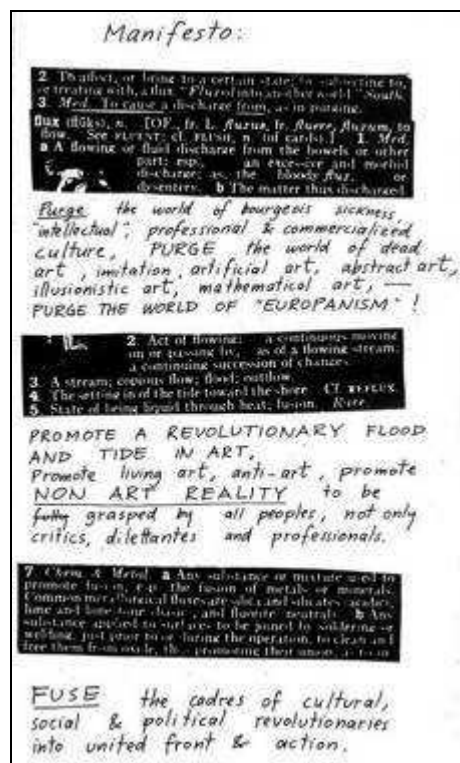 Manifesto:
2. To affect, or bring to a certain state, by subjecting to,
or treating with, a flux. "Fluxed into another world." South.
3. Med. To cause a discharge from, as in purging.
flux (flŭks), n. [OF., fr. L. fluxus, fr. fluere, fluxum, to
flow. See FLUENT; cf. FLUSH, n. (of cards).] 1. Med.
a A flowing or fluid discharge from the bowels or other
part: esp., an excessive and morbid
discharge; as, the bloody flux, or
dysentery. b The matter thus discharged
Purge the world of bourgeois sickness,
"intellectual", professional & commercialized
culture, PURGE the world of dead
art, imitation, artificial art, abstract art,
illusionistic art, mathematical art, —
PURGE THE WORLD OF "EUROPANISM"!
2. Act of flowing: a continuous moving
on or passing by, as of a flowing stream;
a continuing succession of changes.
3. A stream; copious flow; flood; outflow.
4. The setting in of the tide toward the shore. Cf. REFLUX.
5. State of being liquid through heat; fusion. Rare.
PROMOTE A REVOLUTIONARY FLOOD
AND TIDE IN ART,
Promote living art, anti-art, promote
NON ART REALITY to be
fully grasped by all peoples, not only
critics, dilettantes and professionals.
7. Chem. & Metal. a Any substance or mixture used to
promote fusion, esp. the fusion of metals or minerals.
Common metallurgical fluxes are silica and silicates (acidic),
lime and limestone (basic), and fluorite (neutral). b Any
substance applied to surfaces to be joined by soldering or
welding, just prior to or during the operation, to clean and
free them from oxide, thus promoting their union, as rosin.
FUSE the cadres of cultural,
social & political revolutionaries
into united front & action.